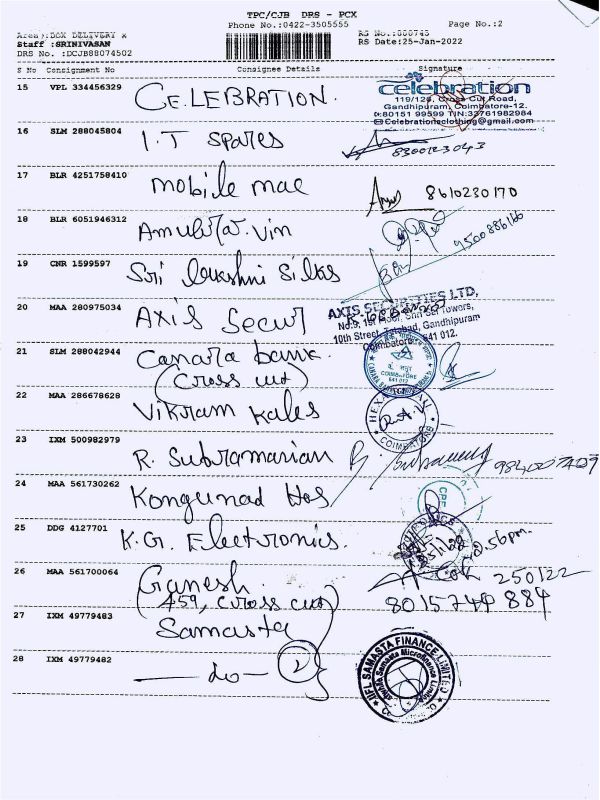 TPC/CJB DRS - PCX
Phone No.:0422-3505555
Page No.:2
Area :BOX DELIVERY
Staff :SRINIVASAN
DRS No. :DCJB88074502
RS Date:25-Jan-2022
S No Consignment No Consignee Details Signature
15 VPL 334456329 CELEBRATION.
celebration
Gandhipuram, Coimbatore-12.
Celebrationsclothing@gmail.com
16 SLM 288045804 I.T Spares
8300123043
17 BLR 4251758410 mobile mac
8610230170
18 BLR 6051946312
9500886166
19 CNR 1599597 Sri lakshmi Silks
20 MAA 280975034 AXIS Secur
AXIS SECURITIES LTD,
No.9, 1st Floor, Shri Sai Towers,
10th Street, Tatabad, Gandhipuram
Coimbatore 641 012.
21 SLM 288042944 Canara bank.
(Cross cut)
COIMBATORE
641 012
22 MAA 286678628 Vikram Kales
COIMBATORE
23 IXM 500982979 R. Subramanian
24 MAA 561730262 Kongunad Hos
25 DDG 4127701 K.G. Electronics.
2:56pm.
26 MAA 561700064 Ganesh.
(459, cross cut)
250122
8015744884
27 IXM 49779483 Samasta
28 IXM 49779482 — do — 2
IIFL SAMASTA FINANCE LIMITED